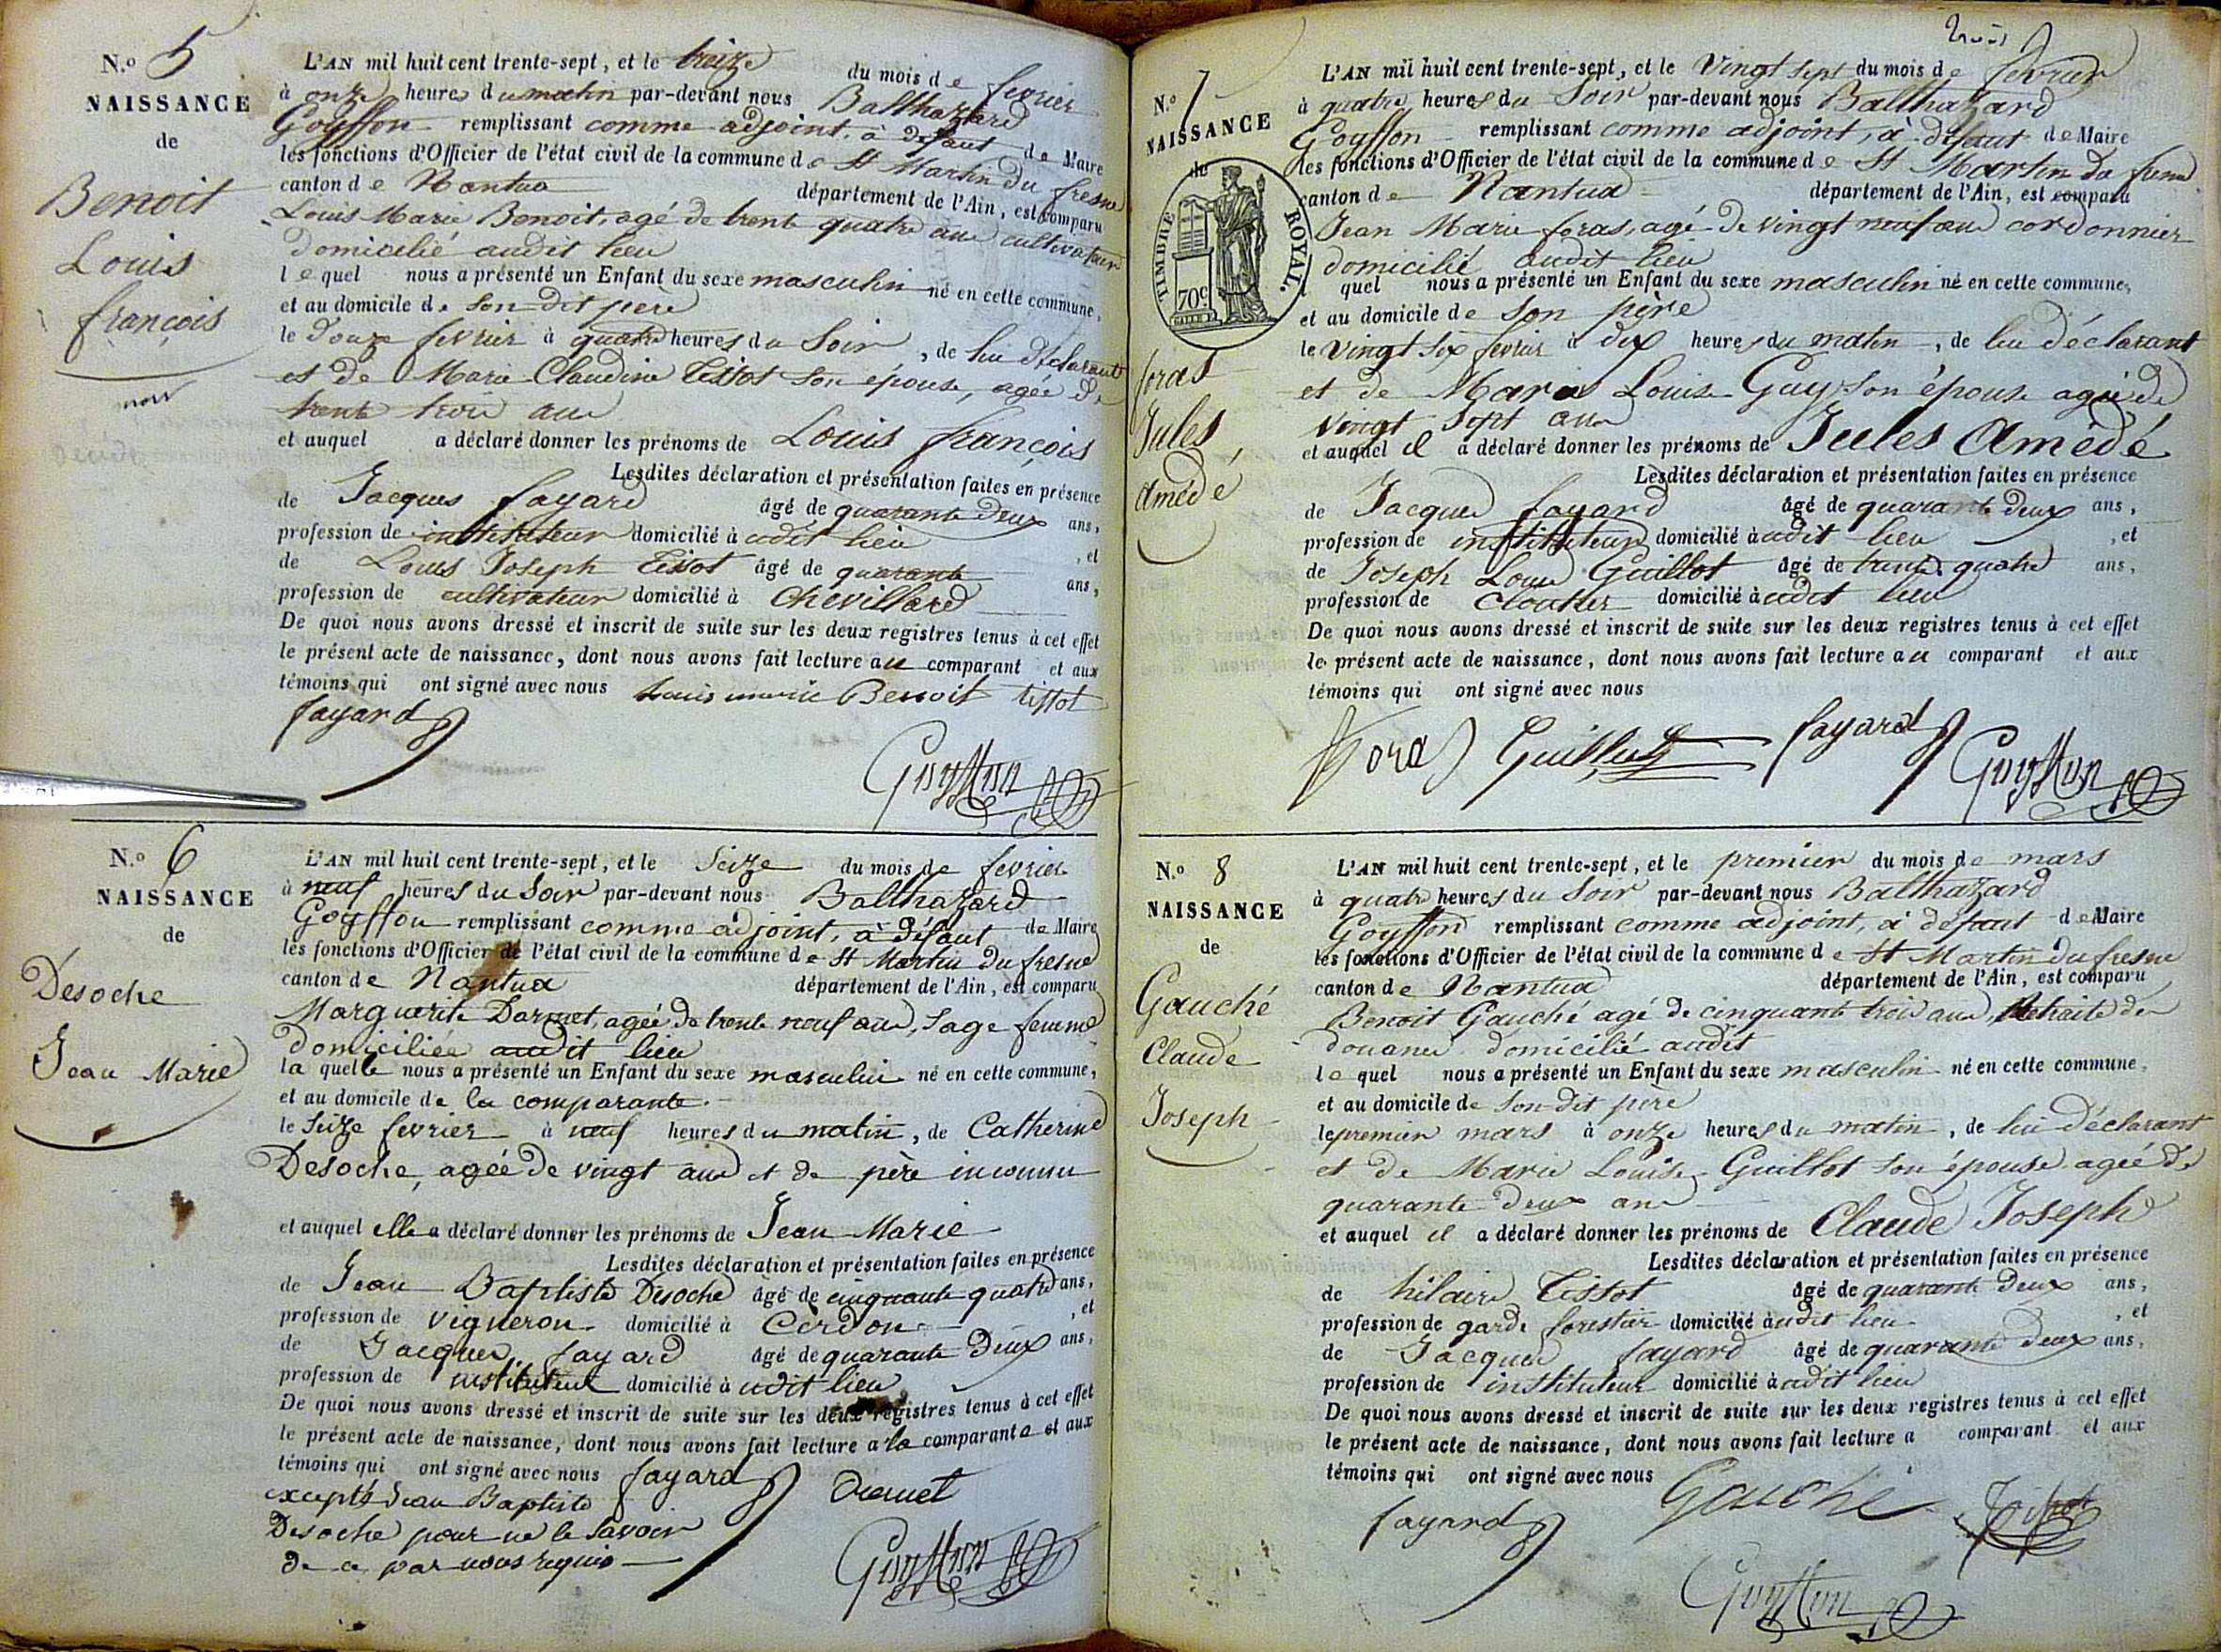 N.° 5
NAISSANCE
de
Benoit
Louis
françois
L'AN mil huit cent trente-sept, et le treize du mois de fevrier
à onze heures du matin par-devant nous Balthazard
Goyffon remplissant comme adjoint, à défaut de Maire
les fonctions d'Officier de l'état civil de la commune de St Martin du fresne
canton de Nantua département de l'Ain, est comparu
Louis Marie Benoit, agé de trente quatre ans cultivateur
domicilié audit lieu
lequel nous a présenté un Enfant du sexe masculin né en cette commune,
et au domicile de son dit pere
le douze fevrier à quatre heures du Soir, de lui déclarant
et de Marie Claudine Tissot son épouse, agée de
trente trois ans
et auquel a déclaré donner les prénoms de Louis françois
Lesdites déclaration et présentation faites en présence
de Jacques fayard âgé de quarante deux ans,
profession de instituteur domicilié à udit lieu, et
de Louis Joseph Tissot âgé de quarante ans,
profession de cultivateur domicilié à Chevillard
De quoi nous avons dressé et inscrit de suite sur les deux registres tenus à cet effet
le présent acte de naissance, dont nous avons fait lecture au comparant et aux
témoins qui ont signé avec nous Louis marie Benoit tissot
fayard
Goyffon
N.° 6
NAISSANCE
de
Désoche
Jean Marie
L'AN mil huit cent trente-sept, et le Seize du mois de fevrier
à neuf heures du Soir par-devant nous Balthazard
Goyffon remplissant comme adjoint, à défaut de Maire
les fonctions d'Officier de l'état civil de la commune de St Martin du fresne
canton de Nantua département de l'Ain, est comparu
Marguerite Darmet, agée de trente neuf ans, Sage femme
domiciliée audit lieu
la quelle nous a présenté un Enfant du sexe masculin né en cette commune,
et au domicile de la comparante.
le Seize fevrier à neuf heures du matin, de Catherine
Desoche, agée de vingt ans et de père inconnu
et auquel elle a déclaré donner les prénoms de Jean Marie
Lesdites déclaration et présentation faites en présence
de Jean Baptiste Desoche âgé de cinquante quatre ans,
profession de vigneron domicilié à Cerdon, et
de Jacques fayard âgé de quarante deux ans,
profession de instituteur domicilié à udit lieu
De quoi nous avons dressé et inscrit de suite sur les deux registres tenus à cet effet
le présent acte de naissance, dont nous avons fait lecture a la comparante et aux
témoins qui ont signé avec nous fayard
excepté Jean Baptiste
Desoche pour ne le savoir
de ce par nous requis
Goyffon
trois
N.° 7
NAISSANCE
de
TIMBRE ROYAL.
70c
foras
Jules
Amédé
L'AN mil huit cent trente-sept, et le Vingt sept du mois de fevrier
à quatre heures du Soir par-devant nous Balthazard
Goyffon remplissant comme adjoint, à défaut de Maire
les fonctions d'Officier de l'état civil de la commune de St Martin du fresne
canton de Nantua département de l'Ain, est comparu
Jean Marie foras, agé de vingt neuf ans cordonnier
domicilié audit lieu
quel nous a présenté un Enfant du sexe masculin né en cette commune,
et au domicile de son père
le Vingt six fevrier à dix heures du matin, de lui déclarant
et de Marie Louise Guy son épouse agée de
vingt Sept ans
et auquel il a déclaré donner les prénoms de Jules Amédé
Lesdites déclaration et présentation faites en présence
de Jacques fayard âgé de quarante deux ans,
profession de instituteur domicilié à udit lieu, et
de Joseph Louis Guillot âgé de trente quatre ans,
profession de cloutier domicilié à udit lieu
De quoi nous avons dressé et inscrit de suite sur les deux registres tenus à cet effet
le présent acte de naissance, dont nous avons fait lecture au comparant et aux
témoins qui ont signé avec nous
foras Guillot fayard Goyffon
N.° 8
NAISSANCE
de
Gauché
Claude
Joseph
L'AN mil huit cent trente-sept, et le premier du mois de mars
à quatre heures du Soir par-devant nous Balthazard
Goyffon remplissant comme adjoint, à défaut de Maire
les fonctions d'Officier de l'état civil de la commune de St Martin du fresne
canton de Nantua département de l'Ain, est comparu
Benoit Gauché agé de cinquante trois ans, Retraité des
douanes domicilié audit
lequel nous a présenté un Enfant du sexe masculin né en cette commune,
et au domicile de son dit père
le premier mars à onze heures du matin, de lui déclarant
et de Marie Louise Guillot son épouse agée de
quarante deux ans
et auquel il a déclaré donner les prénoms de Claude Joseph
Lesdites déclaration et présentation faites en présence
de hilaire Tissot âgé de quarante deux ans,
profession de garde forestier domicilié à udit lieu, et
de Jacques fayard âgé de quarante deux ans,
profession de instituteur domicilié à udit lieu
De quoi nous avons dressé et inscrit de suite sur les deux registres tenus à cet effet
le présent acte de naissance, dont nous avons fait lecture a comparant et aux
témoins qui ont signé avec nous Gauché
fayard
Goyffon